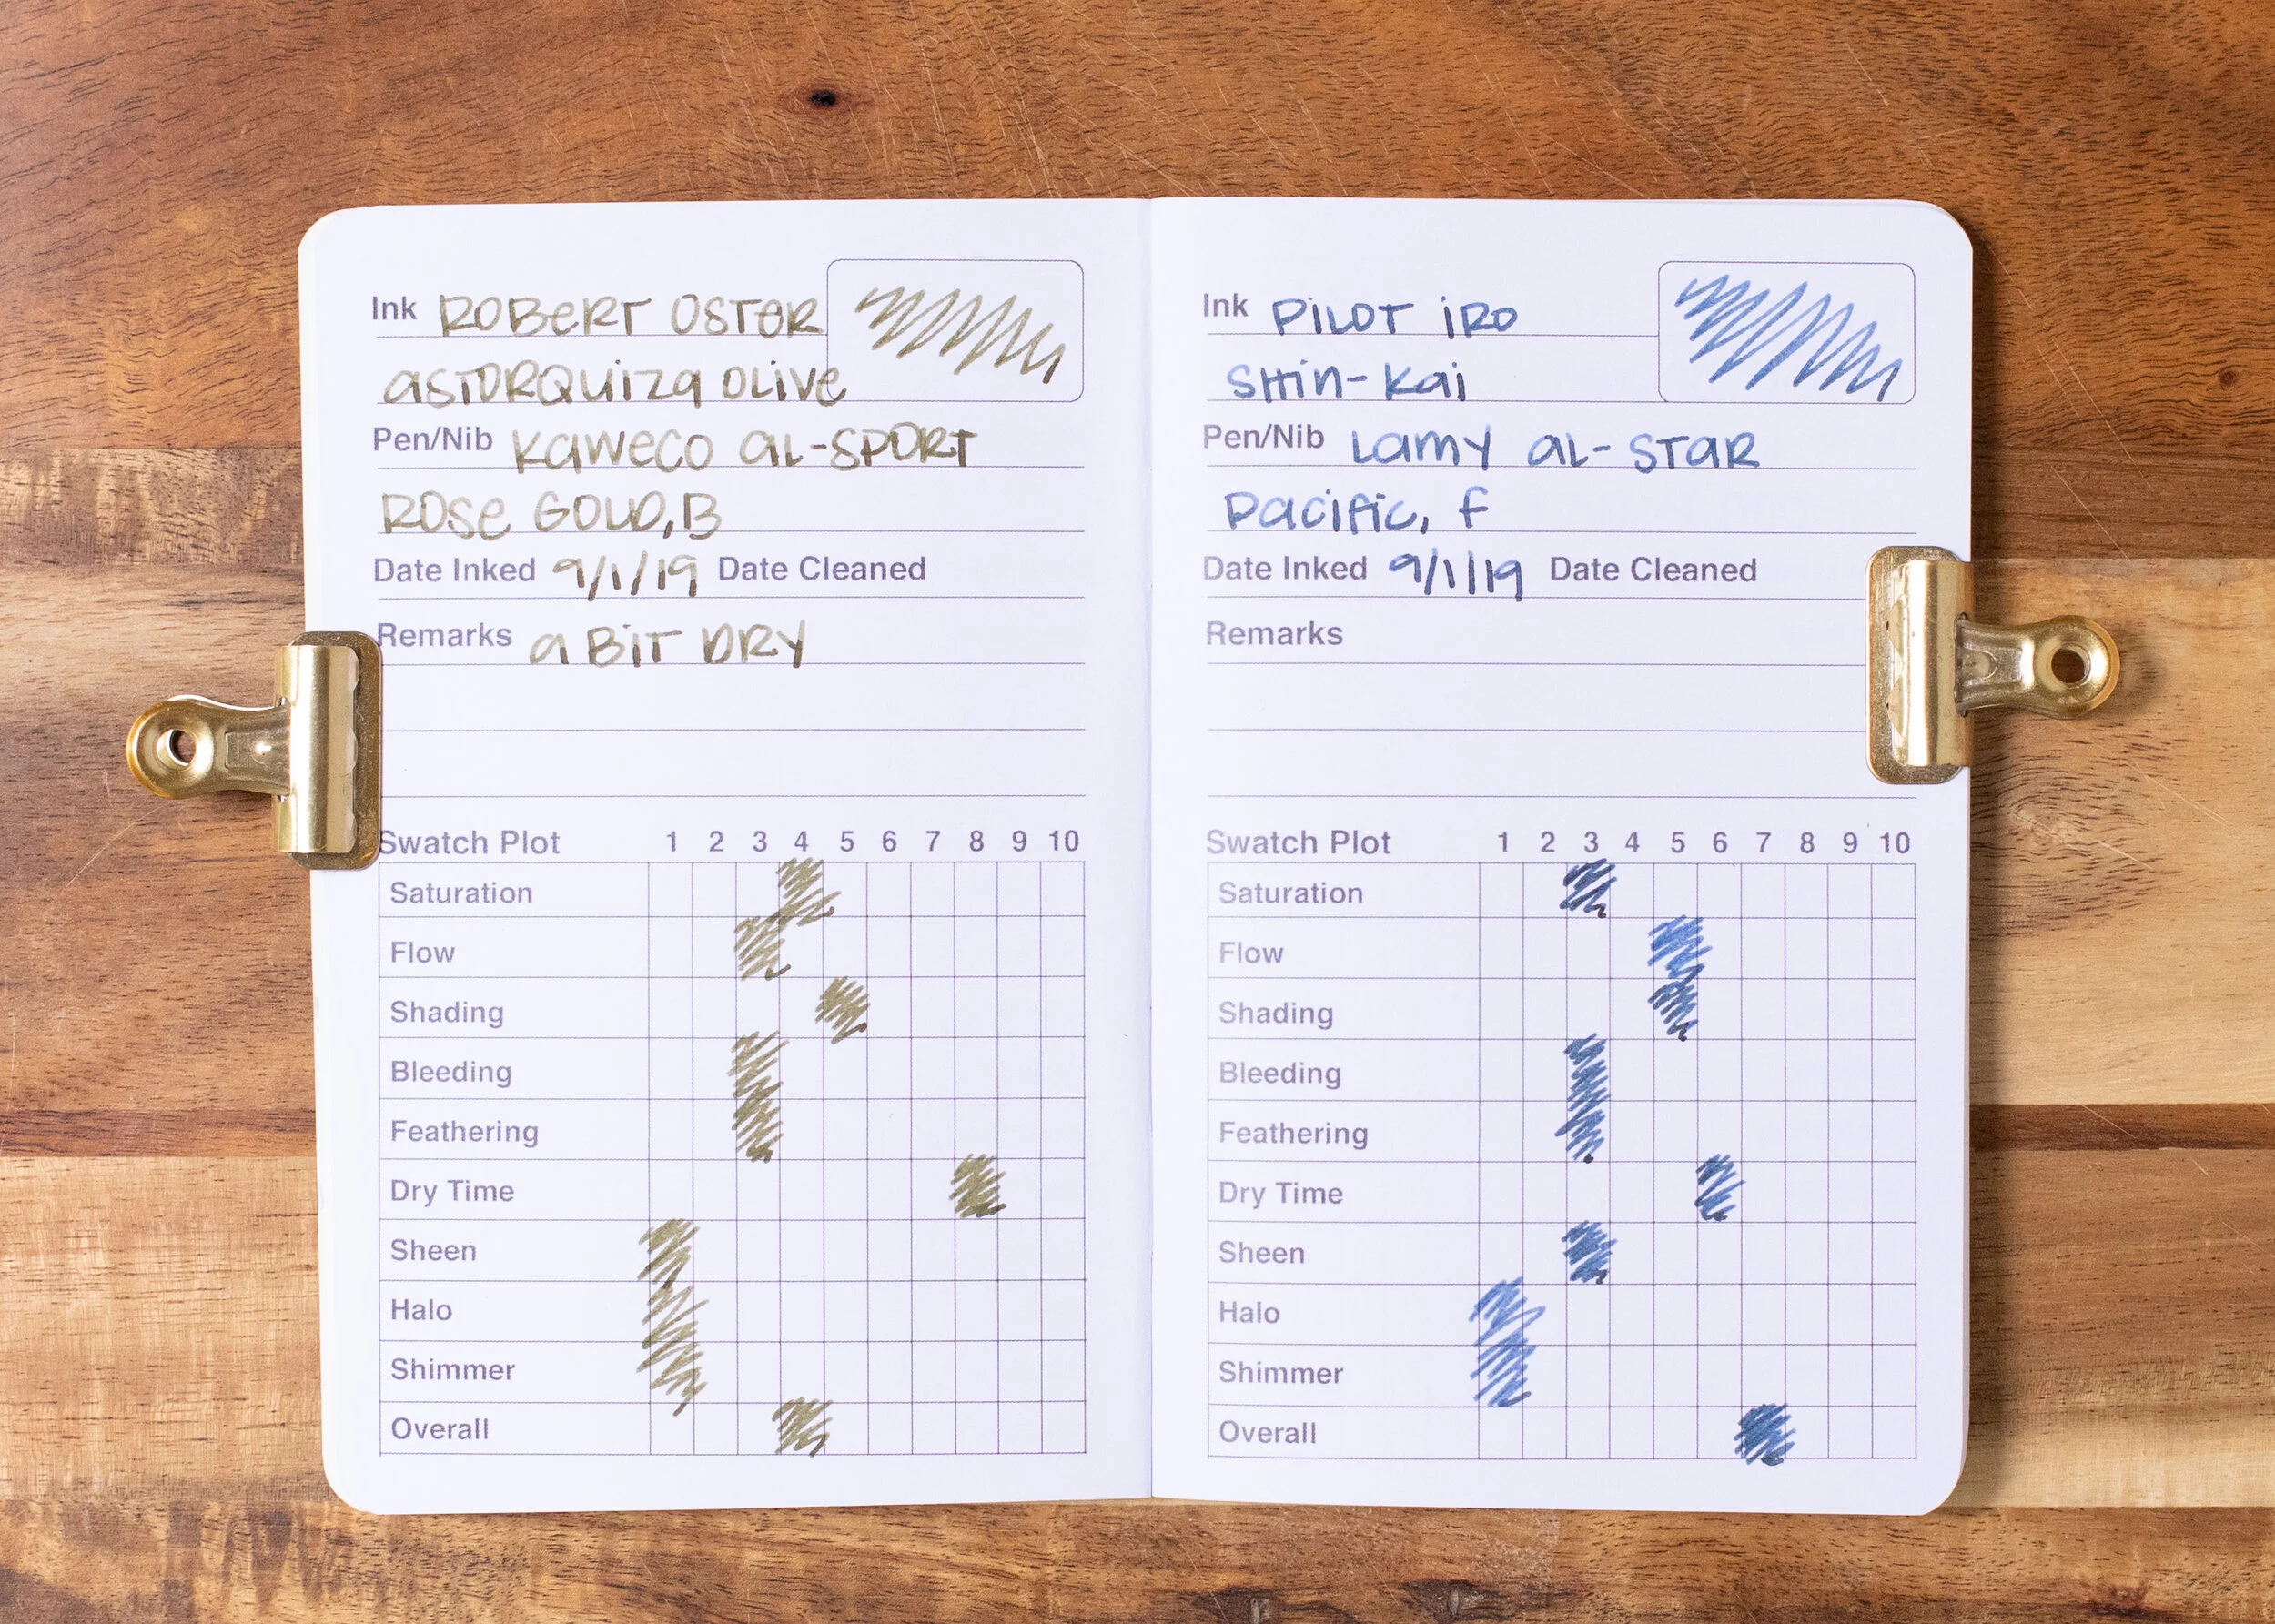 Ink ROBERT OSTER
ASTORQUIZA OLIVE
Pen/Nib KAWECO AL-SPORT
ROSE GOLD, B
Date Inked 9/1/19 Date Cleaned
Remarks A BIT DRY
Swatch Plot 1 2 3 4 5 6 7 8 9 10
Saturation
Flow
Shading
Bleeding
Feathering
Dry Time
Sheen
Halo
Shimmer
Overall
Ink PILOT IRO
SHIN-KAI
Pen/Nib LAMY AL-STAR
PACIFIC, F
Date Inked 9/1/19 Date Cleaned
Remarks
Swatch Plot 1 2 3 4 5 6 7 8 9 10
Saturation
Flow
Shading
Bleeding
Feathering
Dry Time
Sheen
Halo
Shimmer
Overall